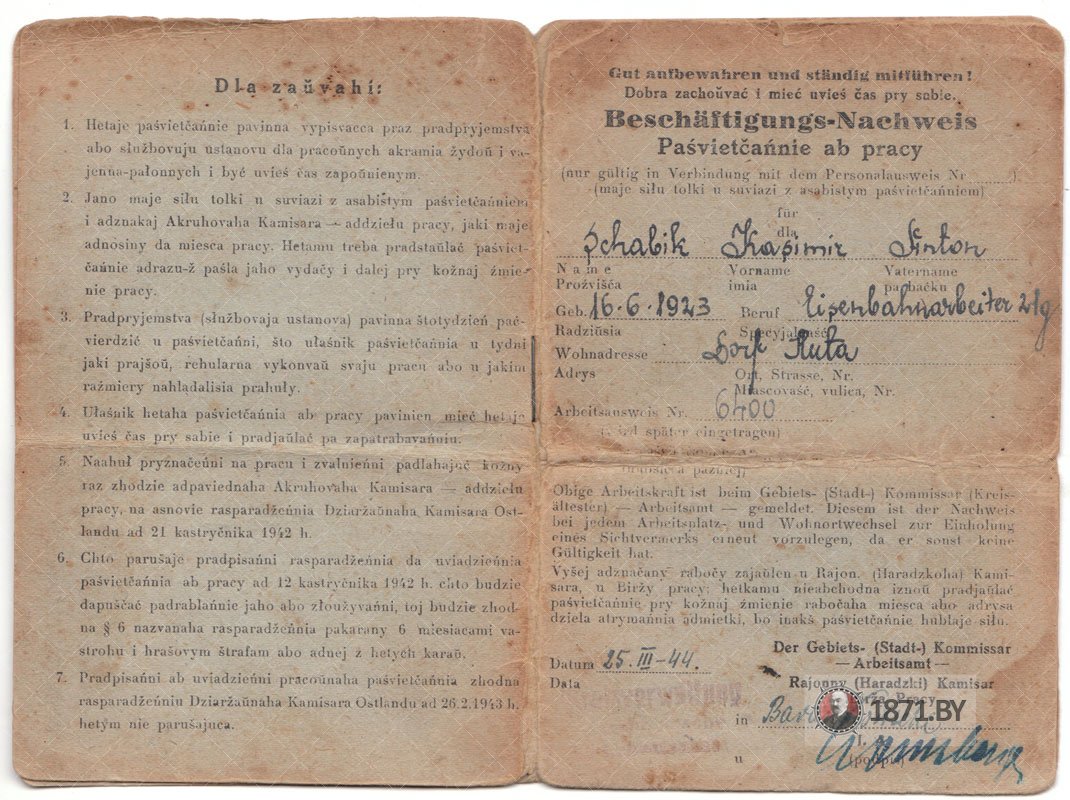 Dlą zaŭvahi:
1. Hetaje paśvietčańnie pavinna vypisvacca praz pradpryjemstva
abo słužbovuju ustanovu dla pracoŭnych akramia žydoŭ i va-
jenna-pałonnych i być uvieś čas zapoŭnienym.
2. Jano maje siłu tolki u suviazi z asabistym paśvietčańniem
i adznakaj Akruhovaha Kamisara — addziełu pracy, jaki maje
adnosiny da miesca pracy. Hetamu treba pradstaŭlać paśviet-
čańnie adrazu-ž paśla jaho vydačy i dalej pry kožnaj źmie-
nie pracy.
3. Pradpryjemstva (słužbovaja ustanova) pavinna štotydzień pać-
vierdzić u paśvietčańni, što ułaśnik paśvietčańnia u tydni
jaki prajšoŭ, rehularna vykonvaŭ svaju pracu abo u jakim
raźmiery nahladalisia prahuły.
4. Ułaśnik hetaha paśvietčańnia ab pracy pavinien mieć hetaje
uvieś čas pry sabie i pradjaŭlać pa zapatrabavańniu.
5. Naahuł pryznačeńni na pracu i zvalnieńni padlahajuć kožny
raz zhodzie adpaviednaha Akruhovaha Kamisara — addziełu
pracy, na asnovie rasparadžeńnia Dziaržaŭnaha Kamisara Ost-
landu ad 21 kastryčnika 1942 h.
6. Chto parušaje pradpisańni rasparadžeńnia da uviadzieńni
paśvietčańnia ab pracy ad 12 kastryčnika 1942 h. chto budzie
dapuščać padrablańnie jaho abo złoužyvańni, toj budzie zhod-
na § 6 nazvanaha rasparadžeńnia pakarany 6 miesiacami va-
strohu i hrašovym štrafam abo adnej z hetych karaŭ.
7. Pradpisańni ab uviadzieńni pracoŭnaha paśvietčańnia zhodna
rasparadžeńniu Dziaržaŭnaha Kamisara Ostlandu ad 26.2.1943 h.
hetym nie parušajuca.
Gut aufbewahren und ständig mitführen!
Dobra zachoŭvać i mieć uvieś čas pry sabie.
Beschäftigungs-Nachweis
Paśvietčańnie ab pracy
(nur gültig in Verbindung mit dem Personalausweis Nr. ).
(maje siłu tolki u suviazi z asabistym paśvietčańniem)
für
dla
Schabik Kasimir Anton
Name Vorname Vatername
Prožvišča imia pabaćku
Geb. 16.6.1923 Beruf Eisenbahnarbeiter
Radziŭsia Specyjalnaść
Wohnadresse Dorf Ruta
Adrys Ort, Strasse, Nr.
Miascovaść, vulica, Nr.
Arbeitsausweis Nr. 6400
(wird später eingetragen)
Obige Arbeitskraft ist beim Gebiets- (Stadt-) Kommissar (Kreis-
ältester) — Arbeitsamt — gemeldet. Diesem ist der Nachweis
bei jedem Arbeitsplatz- und Wohnortwechsel zur Einholung
eines Sichtvermerks erneut vorzulegen, da er sonst keine
Gültigkeit hat.
Vyšej adznačany rabočy zajaŭlen u Rajon. (Haradzkoha) Kami-
sara, u Biržy pracy; hetkamu nieabchodna iznoŭ pradjaŭlać
paśvietčańnie pry kožnaj źmienie rabočaha miesca abo adrysa
dziela atrymańnia admietki, bo inakš paśvietčańnie hublaje siłu.
Der Gebiets- (Stadt-) Kommissar
— Arbeitsamt —
Datum 25. III - 44.
Data
Rajonny (Haradzki) Kamisar
Pracy
in
1871.BY
u